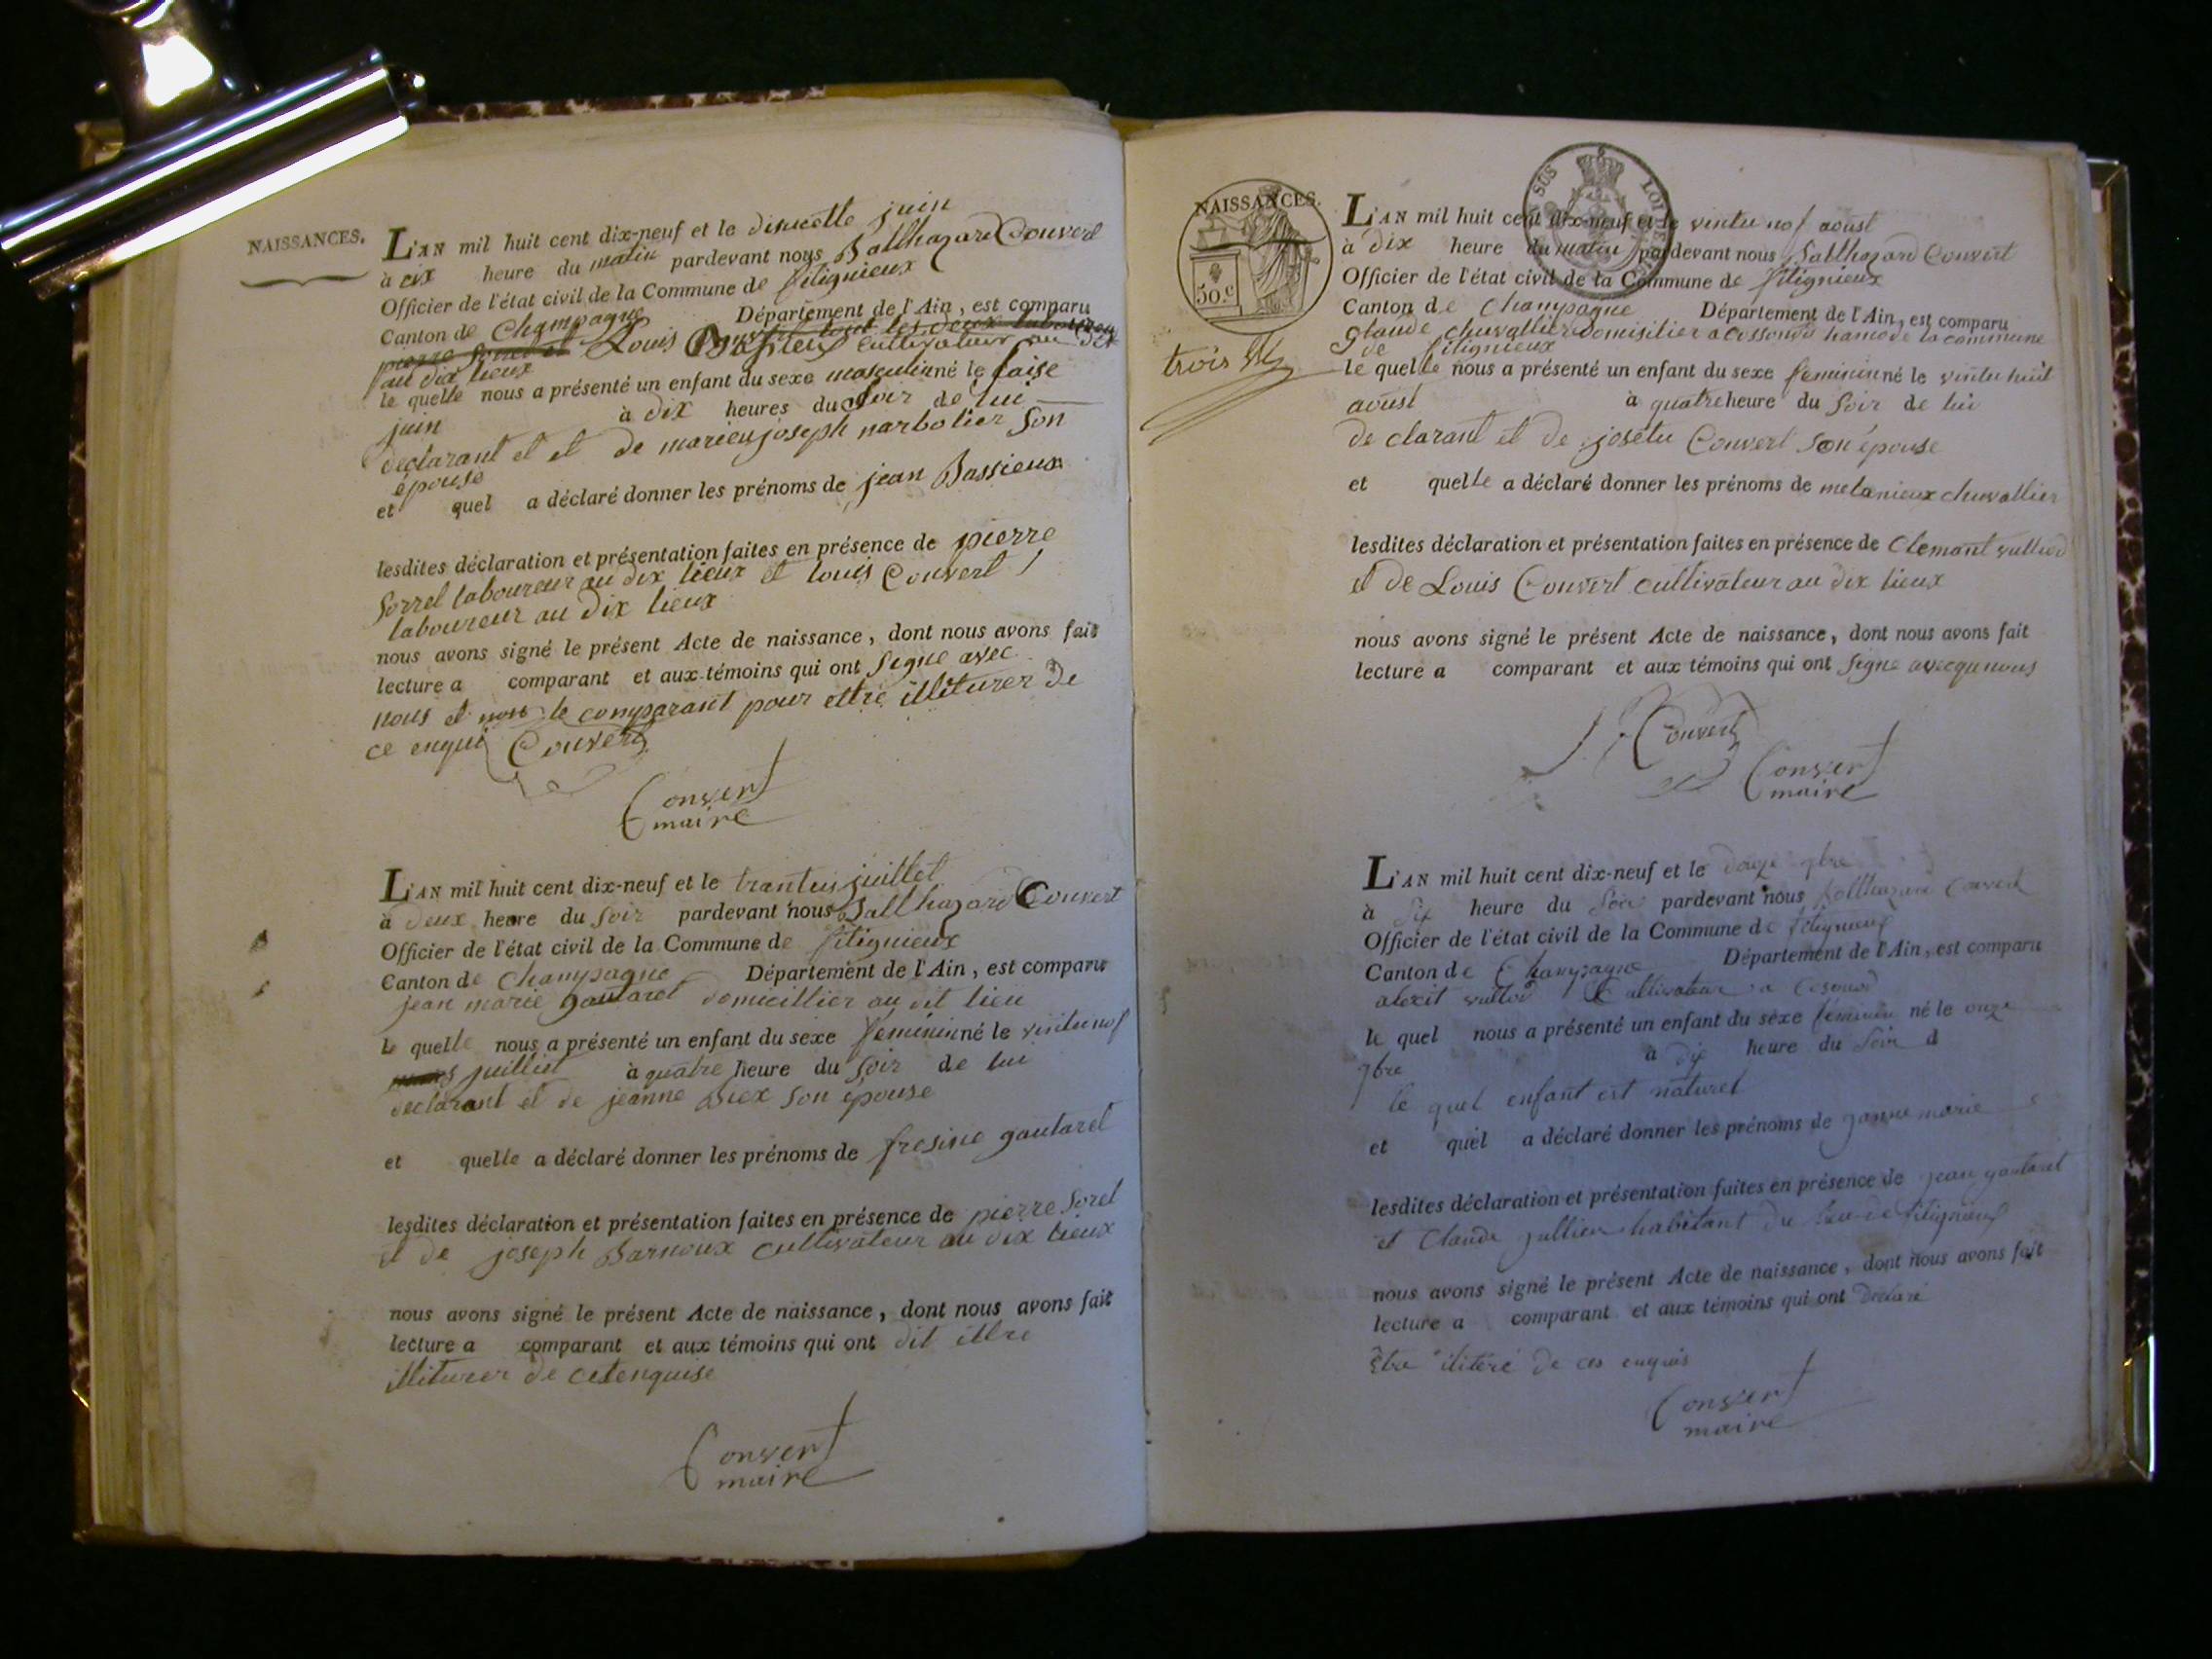 NAISSANCES.
L'AN mil huit cent dix-neuf et le diseette juin
à dix heure du matin pardevant nous Balthazard Convert
Officier de l'état civil de la Commune de fitignieux
Canton de Champagne Département de l'Ain, est comparu
pierre Sorrel et Louis tout les deux laboureur
cultivateur au dix
au dix lieux
le quelle nous a présenté un enfant du sexe masculin né le saise
juin à dix heures du soir de lui
declarant et et de marieu joseph narbolier son
épouse
et quel a déclaré donner les prénoms de jean Bassieux
lesdites déclaration et présentation faites en présence de pierre
Sorrel laboureur au dix lieux et louis Convert
laboureur au dix lieux
nous avons signé le présent Acte de naissance, dont nous avons fait
lecture a comparant et aux témoins qui ont signe avec
nous et non le comparant pour ettre illiturer de
ce enqui Convert
Convert
maire
L'AN mil huit cent dix-neuf et le trantuis juillet
à deux heure du soir pardevant nous Balthazard Convert
Officier de l'état civil de la Commune de fitignieux
Canton de Champagne Département de l'Ain, est comparu
jean marie gautaret domicillier au dit lieu
le quelle nous a présenté un enfant du sexe féminin né le vintu nof
juillet à quatre heure du soir de lui
declarant et de jeanne Biex son épouse
et quelle a déclaré donner les prénoms de frosine gautaret
lesdites déclaration et présentation faites en présence de pierre Sorel
et de joseph Barnoux cultivateur au dix lieux
nous avons signé le présent Acte de naissance, dont nous avons fait
lecture a comparant et aux témoins qui ont dit ittre
illiturer de cetenquise
Convert
maire
NAISSANCES.
50.c
trois
L'AN mil huit cent dix-neuf et le vintu nof aoust
à dix heure du matin pardevant nous Balthazard Convert
Officier de l'état civil de la Commune de fitignieux
Canton de Champagne Département de l'Ain, est comparu
glaude chuvallier domisilier a cossonod hamo de la commune
de fitignieux
le quelle nous a présenté un enfant du sexe feminin né le vintu huit
aoust à quatre heure du soir de lui
de clarant et de josetu Convert son épouse
et quelle a déclaré donner les prénoms de melanieux chuvallier
lesdites déclaration et présentation faites en présence de Clemant vulliod
et de Louis Convert cultivateur au dix lieux
nous avons signé le présent Acte de naissance, dont nous avons fait
lecture a comparant et aux témoins qui ont signe avecqu nous
Convert
Convert
maire
L'AN mil huit cent dix-neuf et le douze 7bre
à six heure du soir pardevant nous Balthazard Convert
Officier de l'état civil de la Commune de fitignieux
Canton de Champagne Département de l'Ain, est comparu
alexit vullod Cultivateur a
le quel nous a présenté un enfant du sexe féminin né le onze
7bre à dix heure du soir d
le quel enfant est naturel
et quel a déclaré donner les prénoms de janne marie
lesdites déclaration et présentation faites en présence de jean gautaret
et Claude jullien habitant du lieu de fitignieux
nous avons signé le présent Acte de naissance, dont nous avons fait
lecture a comparant et aux témoins qui ont declaré
être illiteré de ces enquis
Convert
maire